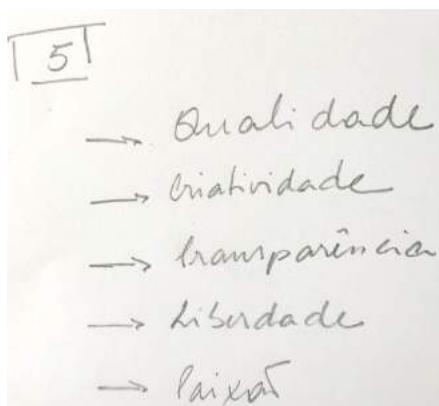 5
→ Qualidade
→ Criatividade
→ Transparência
→ Liberdade
→ Paixão